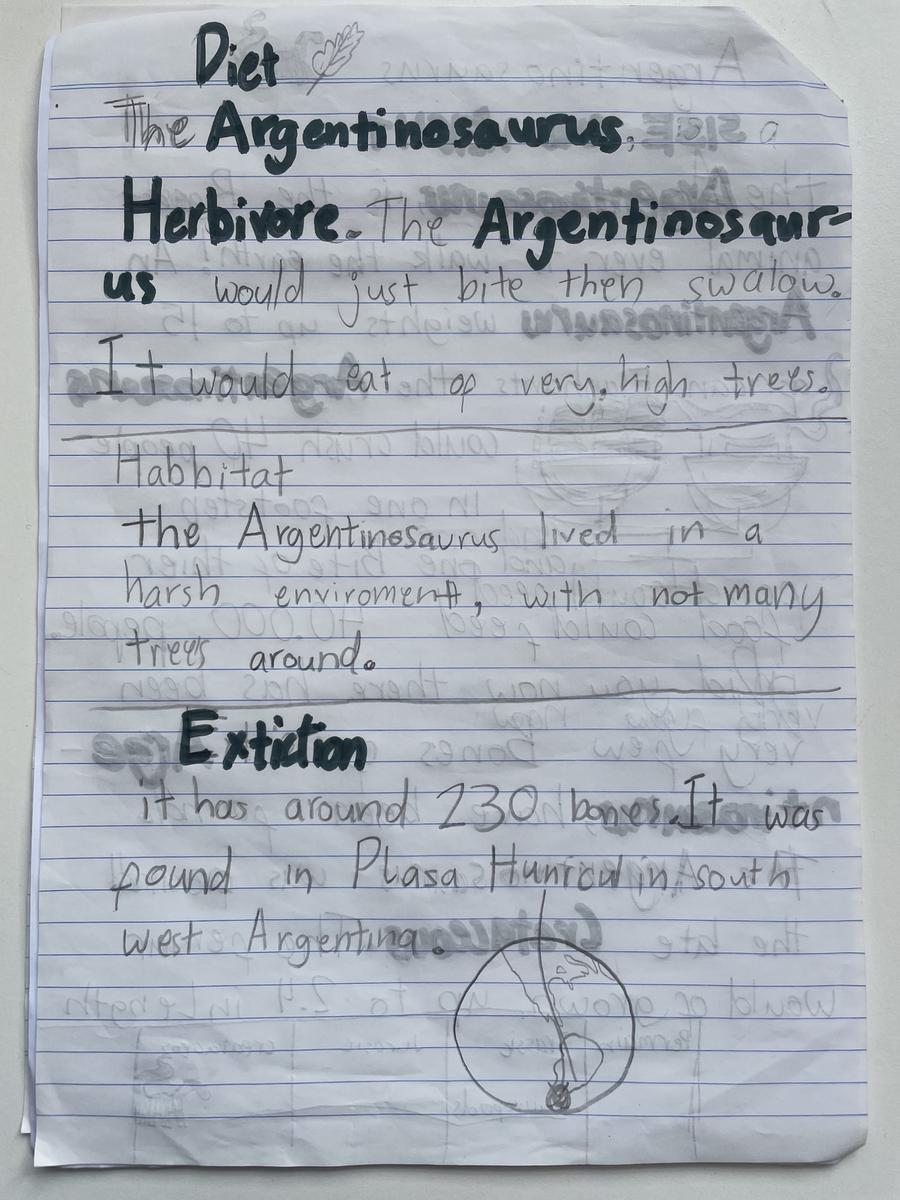 Diet
The Argentinosaurus, is a
Herbivore. The Argentinosaur-
us would just bite then swalow.
It would eat op very high trees.
Habbitat
the Argentinosaurus lived in a
harsh enviroment, with not many
trees around.
Extiction
it has around 230 bones. It was
found in Plasa Hunicul in south
west Argentina.